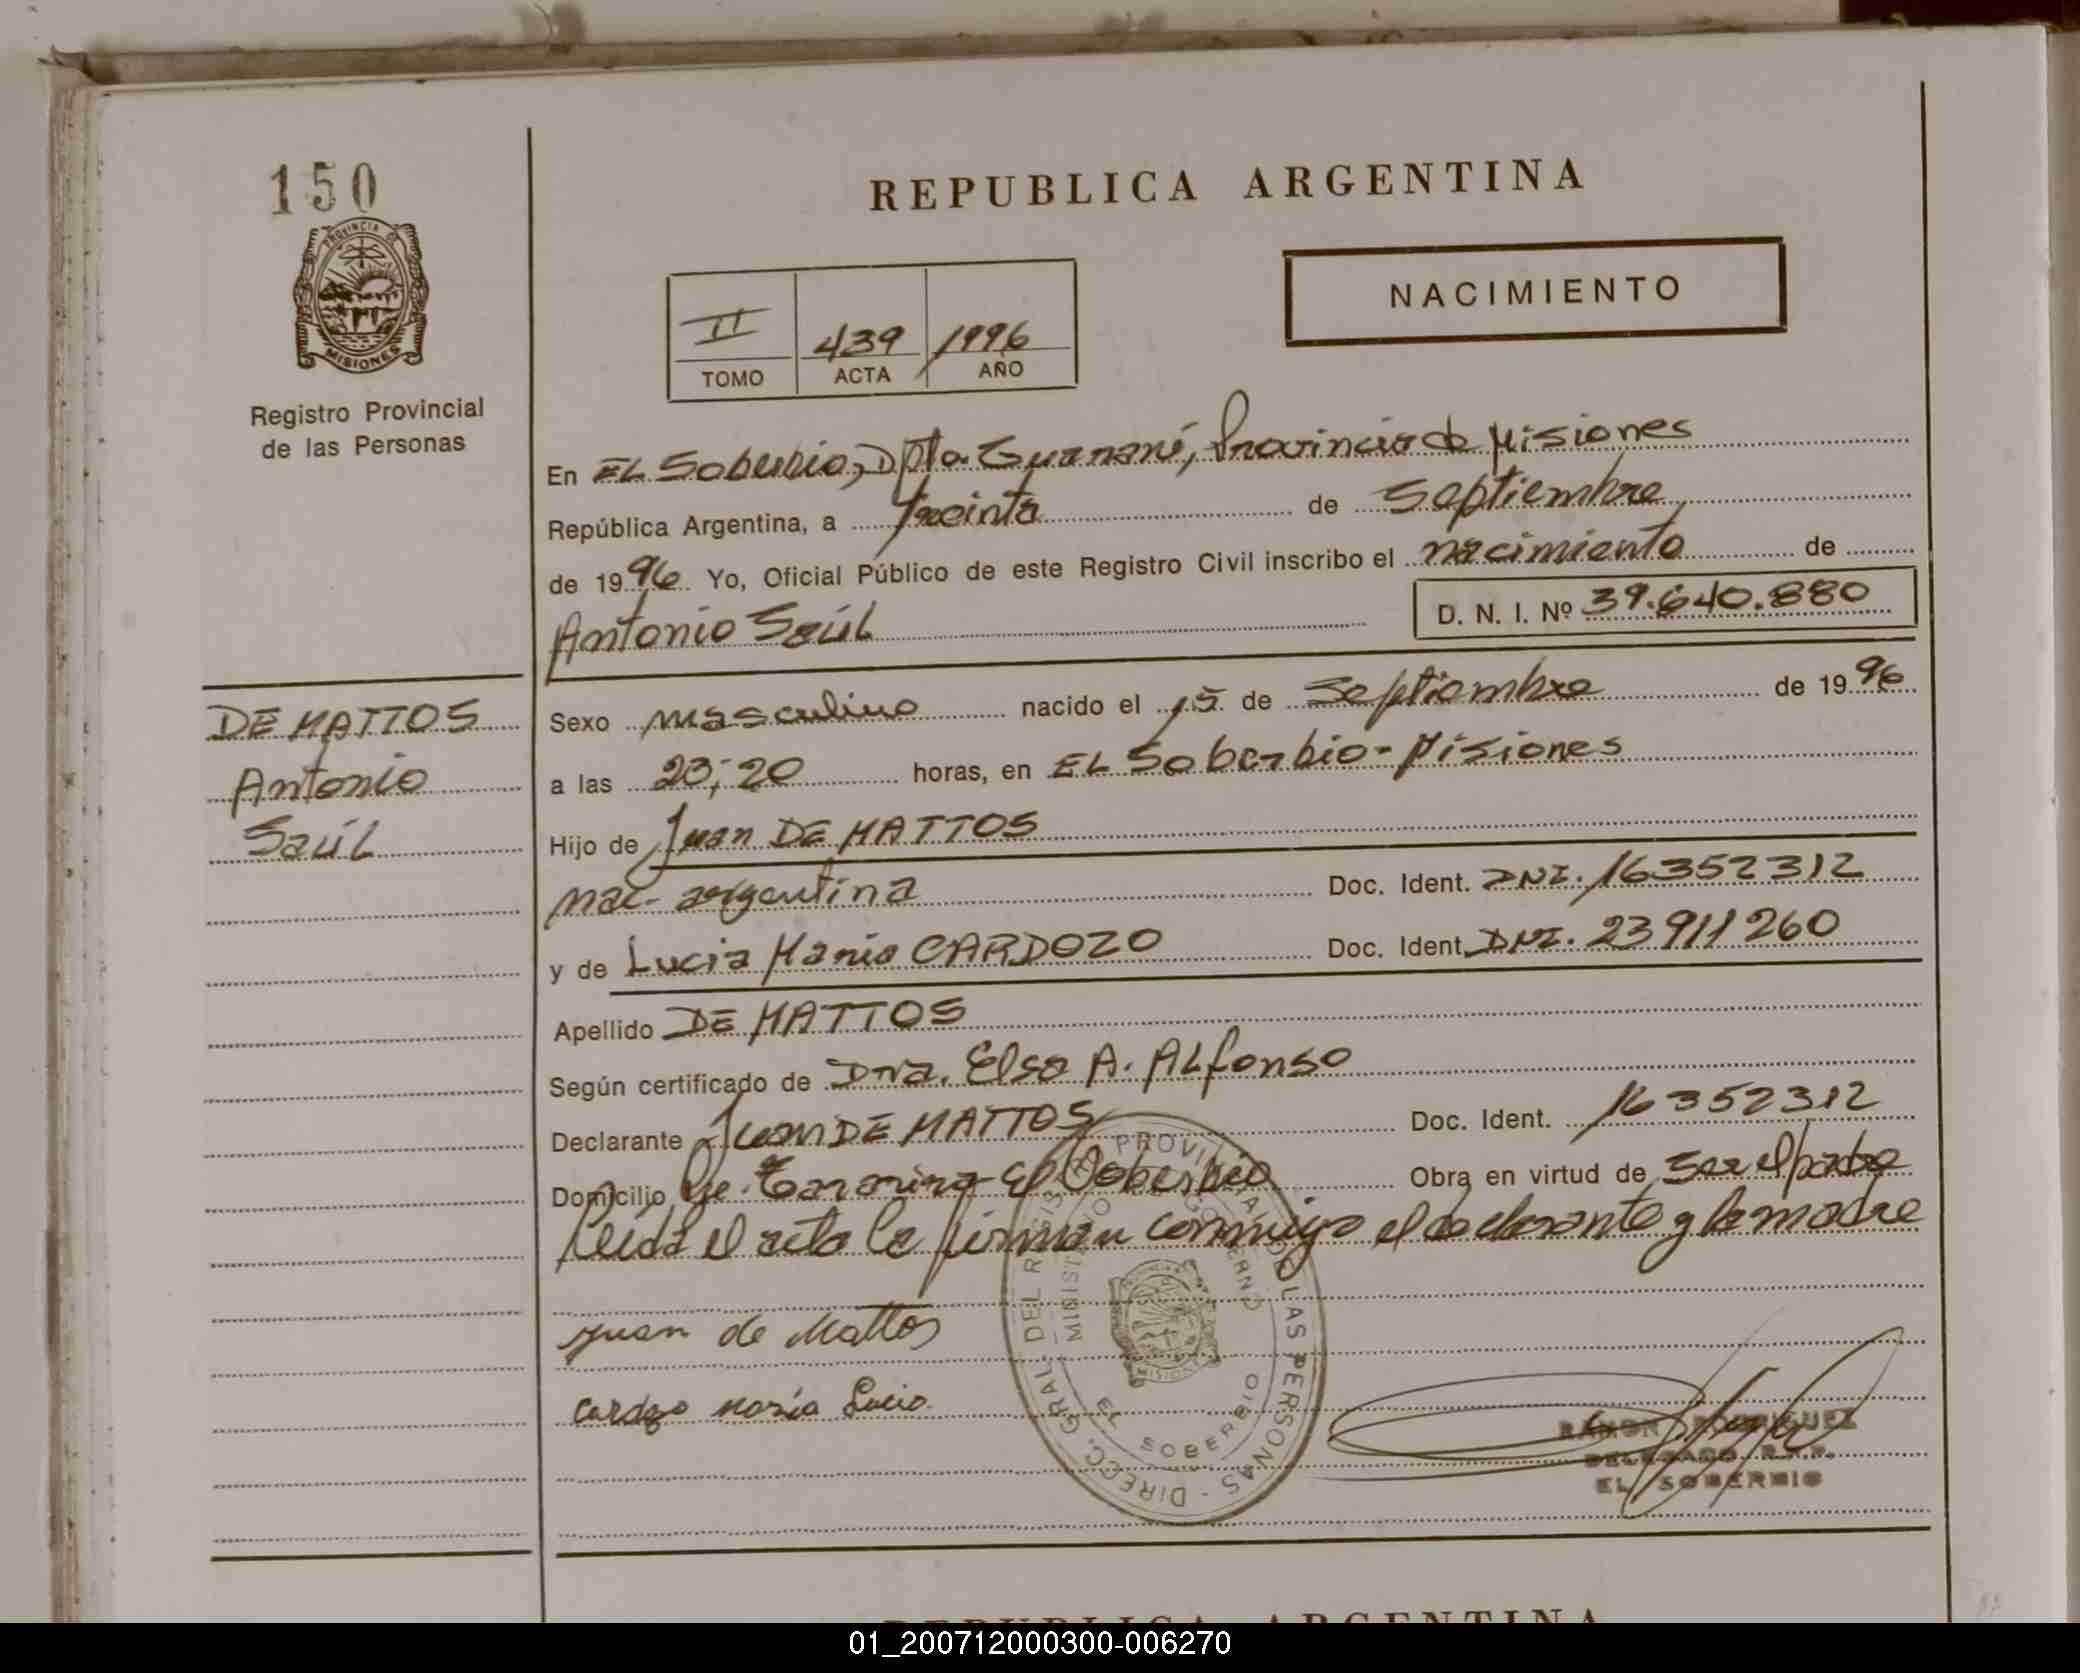 150
REPUBLICA ARGENTINA
PROVINCIA DE
MISIONES
NACIMIENTO
II 439 1996
TOMO ACTA AÑO
Registro Provincial
de las Personas
En EL Soberbio, Dpto. Guaraní, Provincia de Misiones
República Argentina, a treinta de Septiembre
de 1996. Yo, Oficial Público de este Registro Civil inscribo el nacimiento de
Antonio Saúl D. N. I. Nº 39.640.880
DE MATTOS
Antonio
Saúl
Sexo masculino nacido el 15 de Septiembre de 1996
a las 23;20 horas, en EL Soberbio - Misiones
Hijo de Juan DE MATTOS
nac. argentina Doc. Ident. DNI. 16352312
y de Lucia Maria CARDOZO Doc. Ident. DNI. 23911260
Apellido DE MATTOS
Según certificado de Dra. Elsa A. ALfonso
Declarante Juan DE MATTOS Doc. Ident. 16352312
Domicilio El Soberbio Obra en virtud de ser el padre
leída el acta la firman conmigo el declarante y la madre
Juan de Mattos
Cardozo María Lucia
DIRECC. GRAL. DEL REGIS PROVINCIAL DE LAS PERSONAS
MINISTERIO GOBIERNO
MISIONES
EL SOBERBIO
RAMON RODRIGUEZ
DELEGADO R.P.P.
EL SOBERBIO
REPUBLICA ARGENTINA
01_200712000300-006270